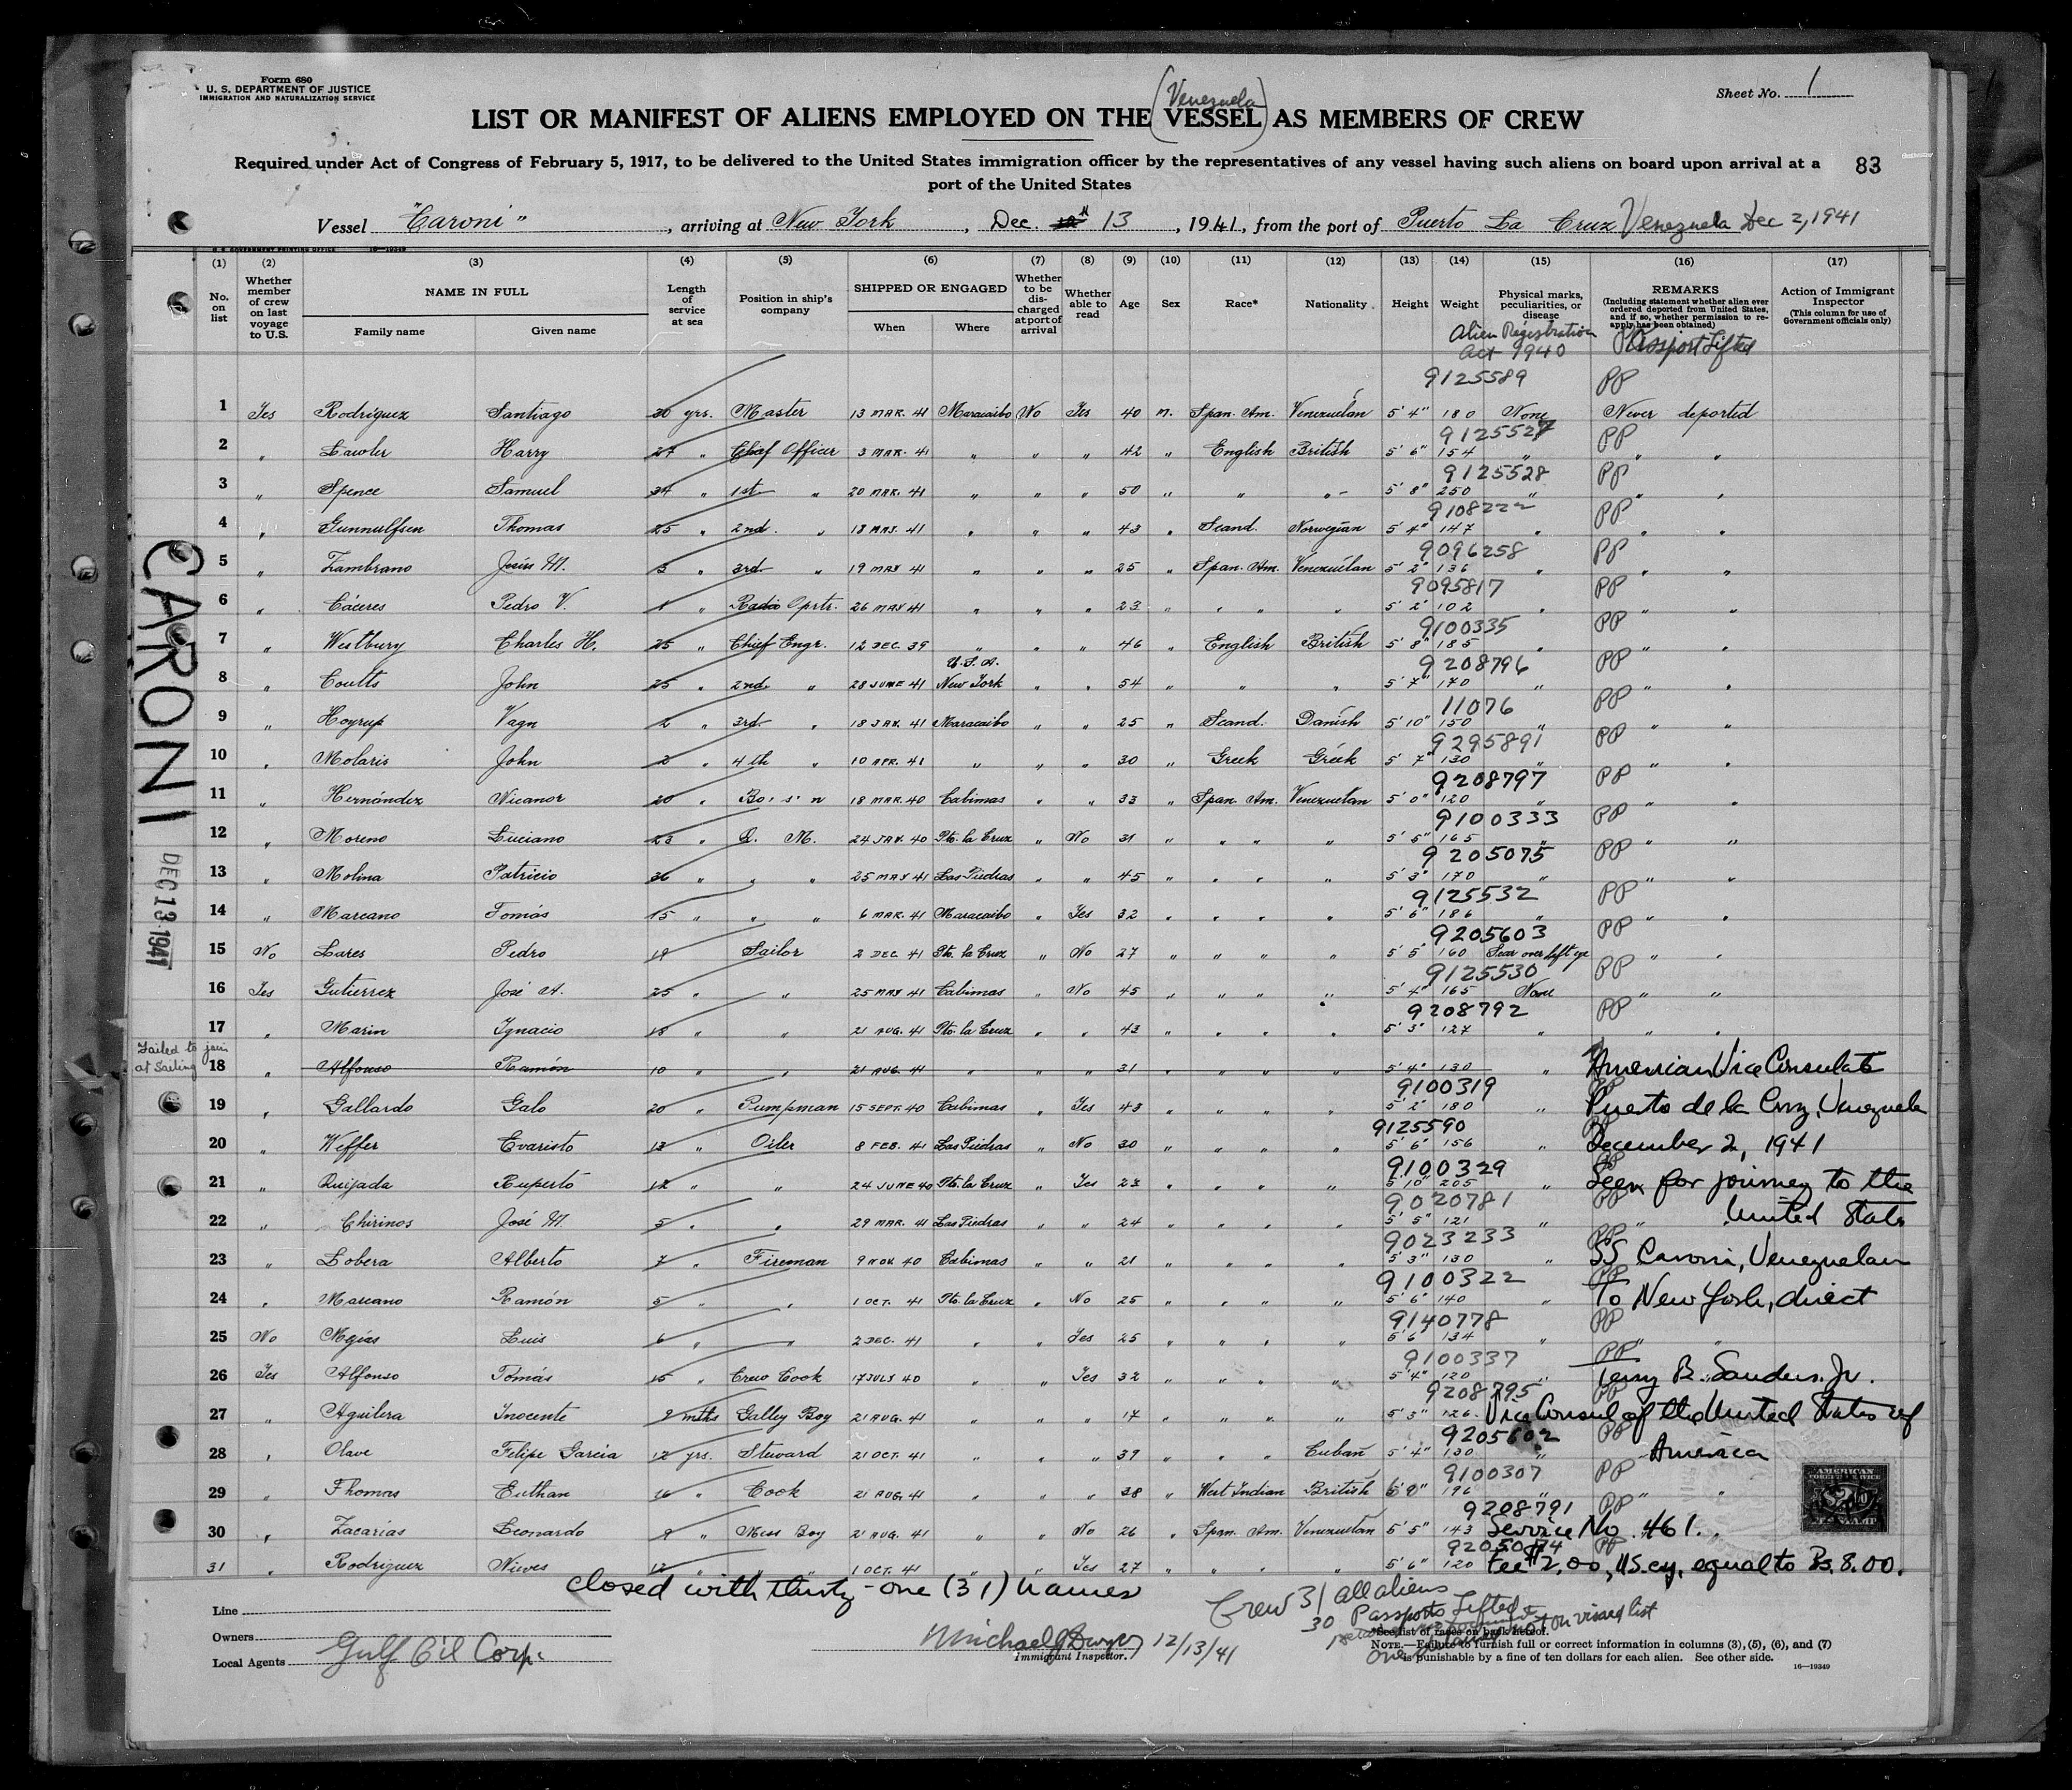 Form 680
U. S. DEPARTMENT OF JUSTICE
IMMIGRATION AND NATURALIZATION SERVICE
Sheet No. 1
(Venezuela)
LIST OR MANIFEST OF ALIENS EMPLOYED ON THE VESSEL AS MEMBERS OF CREW
Required under Act of Congress of February 5, 1917, to be delivered to the United States immigration officer by the representatives of any vessel having such aliens on board upon arrival at a
port of the United States
83
Vessel "Caroni", arriving at New York, Dec. 13, 1941, from the port of Puerto La Cruz Venezuela Dec 2, 1941
U. S. GOVERNMENT PRINTING OFFICE 16—19349
(1) (2) (3) (4) (5) (6) (7) (8) (9) (10) (11) (12) (13) (14) (15) (16) (17)
No. on list
Whether member of crew on last voyage to U.S.
NAME IN FULL
Family name Given name
Length of service at sea
Position in ship's company
SHIPPED OR ENGAGED
When Where
Whether to be discharged at port of arrival
Whether able to read
Age
Sex
Race*
Nationality
Height
Weight
Physical marks, peculiarities, or disease
REMARKS
(Including statement whether alien ever ordered deported from United States, and if so, whether permission to reapply has been obtained)
Action of Immigrant Inspector
(This column for use of Government officials only)
Alien Registration
Act 1940
Passport Lifted
9125589 PP
1 Yes Rodríguez Santiago 26 yrs. Master 13 MAR. 41 Maracaibo No Yes 40 m. Span. Am. Venezuelan 5' 4" 180 None Never deported
9125527 PP
2 " Lawler Harry 27 " Chief Officer 3 MAR. 41 " " " 42 " English British 5' 6" 154 " " "
9125528 PP
3 " Spence Samuel 34 " 1st " 20 MAR. 41 " " " 50 " " " 5' 8" 250 " " "
9108222 PP
4 " Gunnulfsen Thomas 25 " 2nd. " 18 MAR. 41 " " " 43 " Scand. Norwegian 5' 4" 147 " " "
9096258 PP
5 " Zambrano Jesús M. 5 " 3rd " 19 MAY 41 " " " 25 " Span. Am. Venezuelan 5' 2" 136 " " "
9095817 PP
6 " Cáceres Pedro V. 1 " Radio Oprtr. 26 MAY 41 " " " 23 " " " " 5' 2" 102 " " "
9100335 PP
7 " Westbury Charles H. 25 " Chief Engr. 12 DEC. 39 " " " 46 " English British 5' 8" 185 " " "
U.S.A. 9208796 PP
8 " Coutts John 25 " 2nd " 28 JUNE 41 New York " " 54 " " " 5' 7" 170 " " "
11076 PP
9 " Hoyrup Vagn 2 " 3rd " 18 JAN. 41 Maracaibo " " 25 " Scand. Danish 5' 10" 150 " " "
9295891 PP
10 " Molaris John 2 " 4th " 10 APR. 41 " " " 30 " Greek Greek 5' 7" 130 " " "
9208797 PP
11 " Hernández Nicanor 20 " Bo's'n 18 MAR. 40 Cabimas " " 33 " Span. Am. Venezuelan 5' 0" 120 " " "
9100333 PP
12 " Moreno Luciano 23 " Q. M. 24 JAN. 40 Pto. la Cruz " No 31 " " " " 5' 5" 165 " " "
9205075 PP
13 " Molina Patricio 26 " " " 25 MAY 41 Las Piedras " " 45 " " " " 5' 3" 170 " " "
9125532 PP
14 " Marcano Tomás 15 " " " 6 MAR. 41 Maracaibo " Yes 32 " " " " 5' 6" 186 " " "
9205603 PP
15 No Lares Pedro 18 Sailor 2 DEC. 41 Pto. la Cruz " No 27 " " " " 5' 5" 160 Scar over left eye " "
9125530 PP
16 Yes Gutiérrez José A. 25 " " 25 MAY 41 Cabimas " No 45 " " " " 5' 4" 165 None " "
9208792 PP
17 " Marin Ignacio 18 " " 21 AUG. 41 Pto. la Cruz " " 43 " " " " 5' 3" 127 " " "
Failed to join
at Sailing
18 " Alfonso Ramón 10 " " 21 AUG. 41 " " " 31 " " " " 5' 4" 130 " American Vice Consulate
9100319 PP
19 " Gallardo Galo 20 " Pumpman 15 SEPT. 40 Cabimas " Yes 43 " " " " 5' 2" 180 " Puerto de la Cruz, Venezuela
9125590 PP
20 " Weffer Evaristo 13 " Oiler 8 FEB. 41 Las Piedras " No 30 " " " " 5' 6" 156 " December 2, 1941
9100329 PP
21 " Quijada Ruperto 12 " " 24 JUNE 40 Pto. la Cruz " Yes 23 " " " " 5' 10" 205 " Seen for journey to the
9020781 PP
22 " Chirinos José M. 5 " " 29 MAR. 41 Las Piedras " " 24 " " " " 5' 5" 121 " United States
9023233 PP
23 " Lobera Alberto 7 " Fireman 9 NOV. 40 Cabimas " " 21 " " " " 5' 3" 130 " SS Caroni, Venezuelan
9100322 PP
24 " Marcano Ramón 5 " " 1 OCT. 41 Pto. la Cruz " No 25 " " " " 5' 6" 140 " To New York, direct
9140778 PP
25 No Mejías Luis 6 " " 2 DEC. 41 " " Yes 25 " " " " 5' 6" 134 " " "
9100337 PP
26 Yes Alfonso Tomás 15 " Crew Cook 17 JULY 40 " " Yes 32 " " " " 5' 4" 120 " Terry B. Sanders, Jr.
9208795 PP
27 " Aguilera Inocente 9 mths Galley Boy 21 AUG. 41 " " " 17 " " " " 5' 3" 126 Vice Consul of the United States of
9205602 PP
28 " Olave Felipe García 12 yrs. Steward 21 OCT. 41 " " " 39 " Cuban 5' 4" 130 " America
9100307 PP
29 " Thomas Euthan 16 " Cook 21 AUG. 41 " " " 38 " West Indian British 5' 9" 196 " " "
9208791 PP
30 " Zacarías Leonardo 9 " Mess Boy 21 AUG. 41 " " No 26 " Span. Am. Venezuelan 5' 5" 143 Service No. 461.
9205074 PP
31 " Rodríguez Nieves 12 " " " 1 OCT. 41 " " Yes 27 " " " " 5' 6" 120 Fee $2.00, US.cy. equal to Bs. 8.00.
CARONI
DEC 13 1941
AMERICAN
closed with thirty-one (31) names
Crew 31 all aliens
30 Passports Lifted
not on visaed list
one
Line
Owners
Local Agents Gulf Oil Corp.
Michael J Dwyer 12/13/41
Immigrant Inspector.
*See list of races on back hereof.
NOTE.—Failure to furnish full or correct information in columns (3), (5), (6), and (7)
is punishable by a fine of ten dollars for each alien. See other side.
16—19349